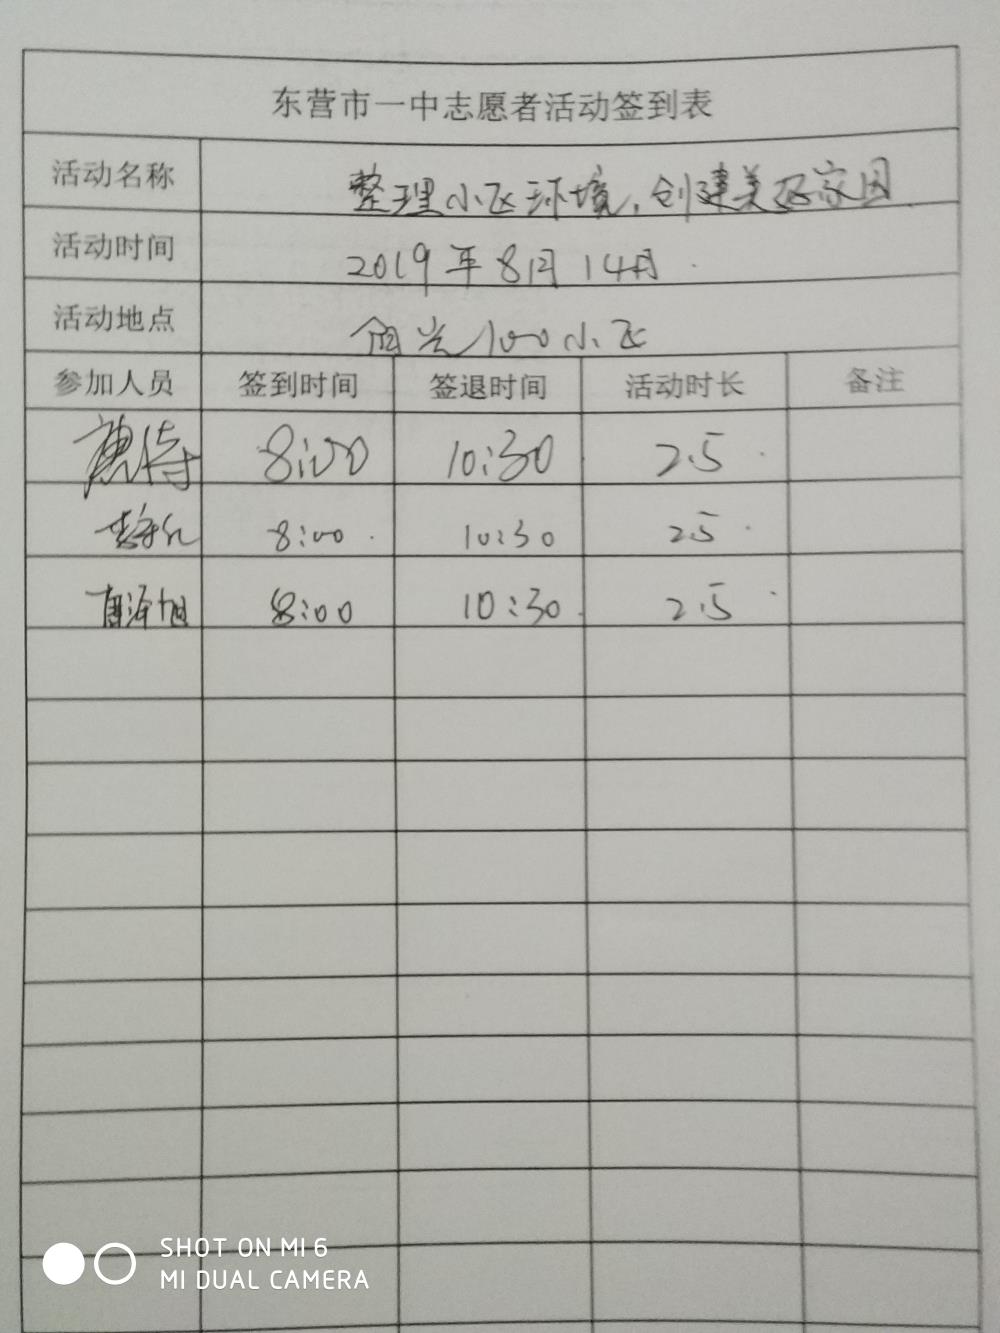 东营市一中志愿者活动签到表
活动名称 整理小区环境,创建美好家园
活动时间 2019年8月14月
活动地点 阳光100小区
参加人员 签到时间 签退时间 活动时长 备注
8:00 10:30 2.5
8:00 10:30 2.5
8:00 10:30 2.5
SHOT ON MI 6
MI DUAL CAMERA